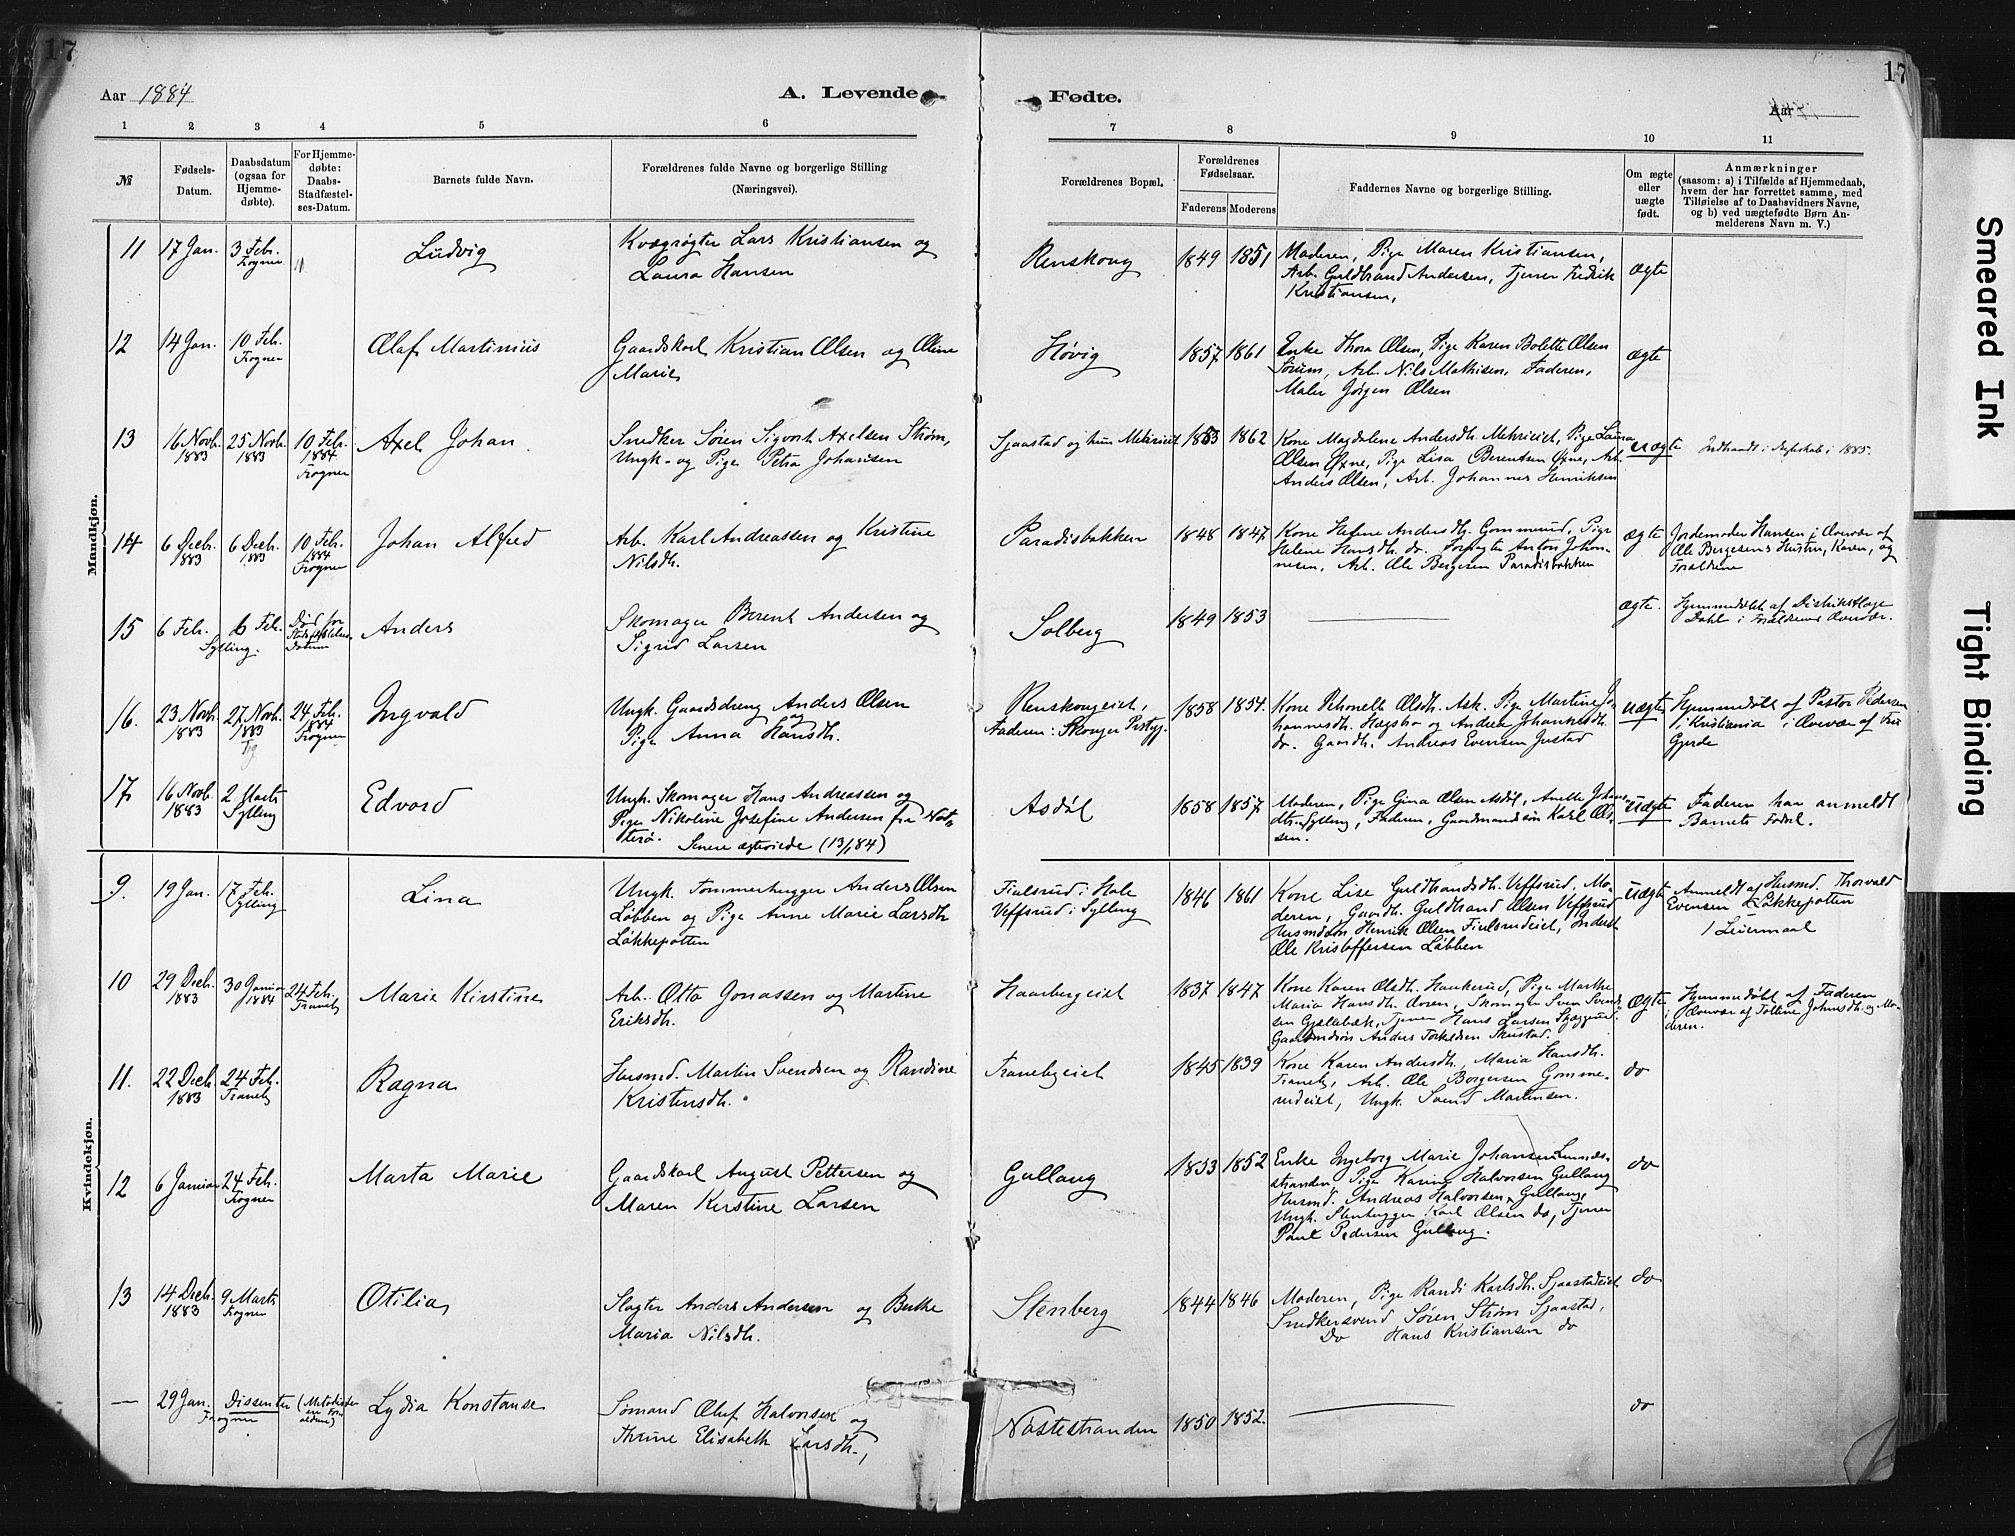 17
17
Aar 1884
A. Levende
Fødte.
Aar
1 2 3 4 5 6 7 8 9 10 11
№
Fødsels-
Datum.
Daabsdatum
(ogsaa for
Hjemme-
døbte).
For Hjemme-
døbte:
Daabs-
Stadfæstel-
ses-Datum.
Barnets fulde Navn.
Forældrenes fulde Navne og borgerlige Stilling
(Næringsvei).
Forældrenes Bopæl.
Forældrenes
Fødselsaar.
Faderens Moderens
Faddernes Navne og borgerlige Stilling.
Om ægte
eller
uægte
født.
Anmærkninger
(saasom: a) i Tilfælde af Hjemmedaab,
hvem der har forrettet samme, med
Tilføielse af to Daabsvidners Navne,
og b) ved uægtefødte Børn An-
melderens Navn m. V.)
Mandkjøn.
11
17 Jan.
3 Feb.
Frogner
Ludvig
Kvægrøgter Lars Kristiansen og
Laura Hansen
Renskoug
1849
1851
Moderen, Pige Maren Kristiansen,
Arb. Guldbrand Andersen, Tjener Fredrik
Kristiansen,
ægte
12
14 Jan.
10 Feb.
Frogner
Olaf Martinius
Gaardskarl Kristian Olsen og Oline
Marie
Høvig
1857
1861
Enke Thora Olsen, Pige Karen Bolette Olsen
Sørum, Arb. Nils Mathisen, Faderen,
Maler Jørgen Olsen
ægte
13
16 Novb.
1883
25 Novb.
1883
10 Feb.
1884
Frogner
Axel Johan
Snedker Søren Sigvart Axelsen Strøm,
Ungk- og Pige Petra Johansen
Sjaastad og hun Mehrieiet
1853
1862
Kone Magdalene Andersdh. Mehrieiet, Pige Laura
Olsen Øxne, Pige Lisa Berentsen Øxne, Arb.
Anders Olsen, Arb. Johannes Henriksen
uægte
Indtraadt i Ægteskab i 1885.
14
6 Decb.
1883
6 Decb.
1883
10 Feb.
1884
Frogner
Johan Alfred
Arb. Karl Andreassen og Kristine
Nilsdh.
Paradisbakken
1848
1847
Kone Helene Andersdh. Gommerud, Pige
Helene Hansdh. do. Forpagter Anton Johan-
nesen, Arb. Ole Bergesen Paradisbakken
ægte
Jordemoder Hansen i Overvær af
Ole Bergesens Hustru, Karen, og
Forældrene
15
6 Feb.
6 Feb.
Sylling.
Død før
Stadfæstelses
Datum
Anders
Skomager Berent Andersen og
Sigrid Larsen
Solberg
1849
1853
ægte.
Hjemmedøbt af Distriktslæge
Dahl i Forældrenes Overvær.
16.
23 Novb.
1883
27 Novb.
1883
24 Feb.
1884
Frogner
Ingvald
Ungk. Gaardsdreng Anders Olsen
og
Pige Anna Hansdh.
Renskougeiet,
Faderen: Skouger Prstgj.
1858
1854.
Kone Thonette Olsdh. Ask. Pige Martine Jo-
hannesdh. Hægsbo og Andrea Johannesdh.
do. Gaardb. Andreas Evensen Justad
uægte
Hjemmedøbt af Pastor Pedersen
i Kristiania i Overvær af Fru
Gjerde
17.
16 Novb.
1883
2 Marts
Sylling
Edvard
Ungk. Skomager Hans Andreassen og
Pige Nikoline Josefine Andersen fra Nøt-
terø. Senere ægteviede (13/1 84)
Asdøl
1858
1857
Moderen, Pige Gina Olsen Asdøl, Anette Johans-
dtr. Sylling, Faderen, Gaardmandssøn Karl Ol-
sen.
uægte
Faderen har anmeldt
Barnets Fødsel.
Kvindekjøn.
9.
19 Jan.
17 Feb.
Sylling
Lina
Ungk. Tømmerhugger Anders Olsen
Løbben og Pige Anne Marie Larsdh.
Løkkepotten
Fielsrud i Hole
Veffsrud i Sylling
1846
1861
Kone Lise Guldbrandsdh. Veffsrud, Mo-
deren, Gaardb. Guldbrand Olsen Veffsrud
Husmdsøn Henrik Olsen Fielsrudeiet, Inderst
Ole Kristoffersen Løbben
uægte
Anmeldt af Husmd. Thorvald
Evensen Løkkepotten
1 Leiermaal
10
29 Decb.
1883
30 Januar
1884
24 Feb.
Tranby
Marie Kirstine
Arb. Otto Jonassen og Martine
Eriksdh.
Haarbergeiet
1837
1847
Kone Karen Olsdh. Haukerud, Pige Marthe
Maria Hansdh. Ovren, Skomager Sven Svend-
sen Gjælabæk, Tjener Hans Larsen Skjæggerud.
Gaardmdsøn Anders Torkildsen Skustad.
ægte
Hjemmedøbt af Faderen
i Overvær af Tolline Johnsdh. og Mo-
deren.
11.
22 Decb.
1883
24 Feb.
Tranby
Ragna
Husmd. Martin Svendsen og Randine
Kristensdh.
Tranebyeiet
1845
1839
Kone Karen Andersdh., Maria Hansdh.
Traneby, Arb. Ole Borgersen Gomme-
rudeiet, Ungk. Svend Martinsen.
do
12
6 Januar
24 Feb.
Frogner
Marta Marie
Gaardskarl August Pettersen og
Maren Kirstine Larsen
Gullaug
1853
1852
Enke Ingeborg Marie Johansen Linnes-
stranden, Pige Karine Halvorsen Gullaug
Husmd. Andreas Halvorsen Gullaug,
Ungk. Stenhugger Karl Olsen do, Tjener
Paul Pedersen Gullaug.
do
13
14 Decb.
1883
9 Marts
Frogner
Otilia
Slagter Anders Andersen og Berthe
Maria Nilsdh.
Stenberg
1844
1846
Moderen, Pige Randi Karlsdh. Sjaastadeiet
Snedkersvend Søren Strøm Sjaastad,
Do Hans Kristiansen do
do
—
29 Jan.
Frogner
Dissenter (Metodister
ere For-
ældrene)
Lydia Konstanse
Sømand Oluf Halvorsen og
Thrine Elisabeth Larsdh.,
Nøstestranden
1850
1852.
do
Smeared Ink
Tight Binding